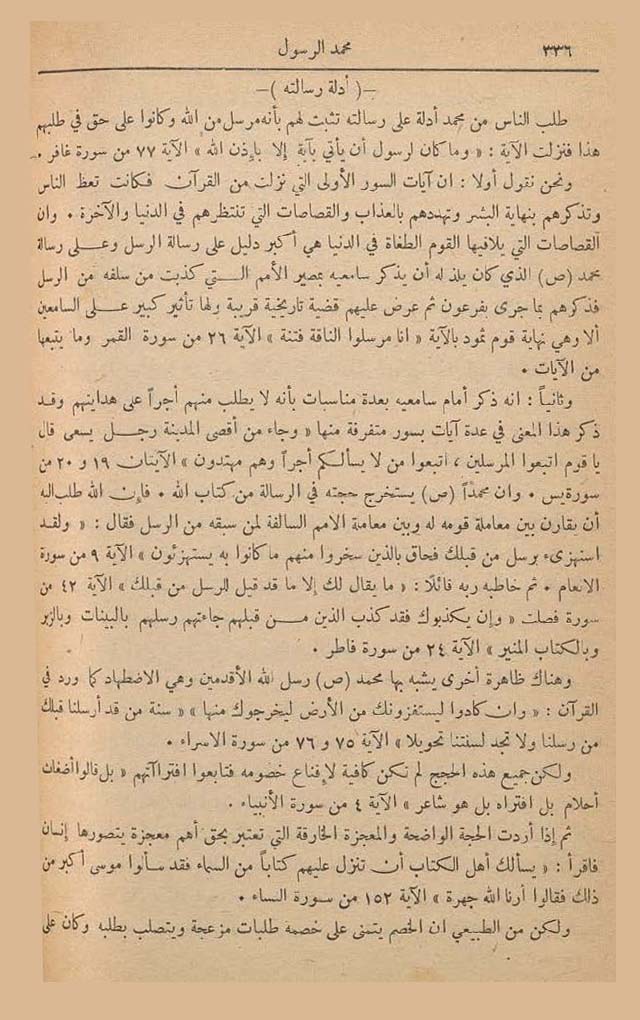 ٣٣٦ محمد الرسول
–( أدلة رسالته )–
طلب الناس من محمد أدلة على رسالته تثبت لهم بأنه مرسل من الله وكانوا على حق في طلبهم
هذا فنزلت الآية : « وما كان لرسول أن يأتي بآية إلا بإذن الله » الآية ٧٧ من سورة غافر .
ونحن نقول أولا : ان آيات السور الأولى التي نزلت من القرآن فكانت تعظ الناس
وتذكرهم بنهاية البشر وتهددهم بالعذاب والقصاصات التي تنتظرهم في الدنيا والآخرة . وان
القصاصات التي يلاقيها القوم الطغاة في الدنيا هي أكبر دليل على رسالة الرسل وعلى رسالة
محمد (ص) الذي كان يلذ له أن يذكر سامعيه بمصير الأمم التي كذبت من سلفه من الرسل
فذكرهم بما جرى بفرعون ثم عرض عليهم قضية تاريخية قريبة ولها تأثير كبير على السامعين
ألا وهي نهاية قوم ثمود بالآية « انا مرسلوا الناقة فتنة » الآية ٢٦ من سورة القمر وما يتبعها
من الآيات .
وثانياً : انه ذكر أمام سامعيه بعدة مناسبات بأنه لا يطلب منهم أجراً على هدايتهم وقد
ذكر هذا المعنى في عدة آيات بسور متفرقة منها « وجاء من أقصى المدينة رجل يسعى قال
يا قوم اتبعوا المرسلين ، اتبعوا من لا يسألكم أجراً وهم مهتدون » الآيتان ١٩ و ٢٠ من
سورة يس . وان محمداً (ص) يستخرج حجته في الرسالة من كتاب الله . فإن الله طلب اليه
أن يقارن بين معاملة قومه له وبين معاملة الامم السالفة لمن سبقه من الرسل فقال : « ولقد
استهزىء برسل من قبلك فحاق بالذين سخروا منهم ما كانوا به يستهزئون » الآية ٩ من سورة
الانعام . ثم خاطبه ربه قائلا : « ما يقال لك إلا ما قد قيل للرسل من قبلك » الآية ٤٢ من
سورة فصلت « وإن يكذبوك فقد كذب الذين من قبلهم جاءتهم رسلهم بالبينات وبالزبر
وبالكتاب المنير » الآية ٢٤ من سورة فاطر .
وهناك ظاهرة أخرى يشبه بها محمد (ص) رسل الله الأقدمين وهي الاضطهاد كما ورد في
القرآن : « وان كادوا ليستفزونك من الأرض ليخرجوك منها » « سنة من قد أرسلنا قبلك
من رسلنا ولا تجد لسنتنا تحويلا » الآية ٧٥ و ٧٦ من سورة الاسراء .
ولكن جميع هذه الحجج لم تكن كافية لإقناع خصومه فتابعوا افتراآتهم « بل قالوا أضغاث
أحلام بل افتراه بل هو شاعر » الآية ٤ من سورة الأنبياء .
ثم إذا أردت الحجة الواضحة والمعجزة الخارقة التي تعتبر بحق أهم معجزة يتصورها إنسان
فاقرأ : « يسألك أهل الكتاب أن تنزل عليهم كتاباً من السماء فقد سألوا موسى أكبر من
ذلك فقالوا أرنا الله جهرة » الآية ١٥٢ من سورة النساء .
ولكن من الطبيعي ان الخصم يتمنى على خصمه طلبات مزعجة ويتصلب بطلبه وكان على